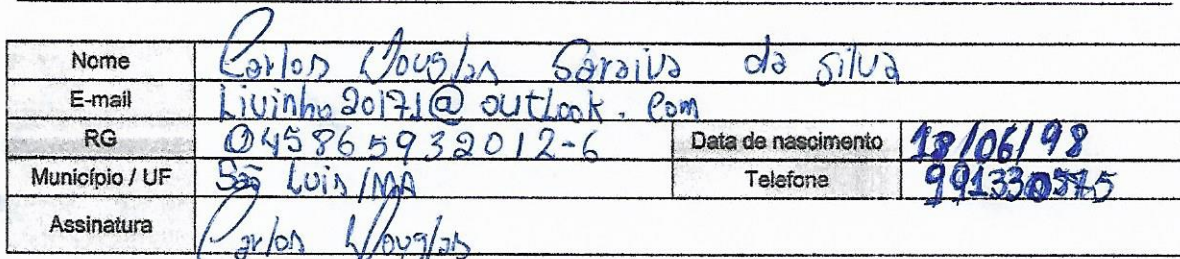 Nome Carlos Douglas Saraiva da Silva
E-mail Livinho20171@outlook.com
RG 045865932012-6 Data de nascimento 18/06/98
Município / UF São Luis/MA Telefone 991330575
Assinatura Carlos Douglas